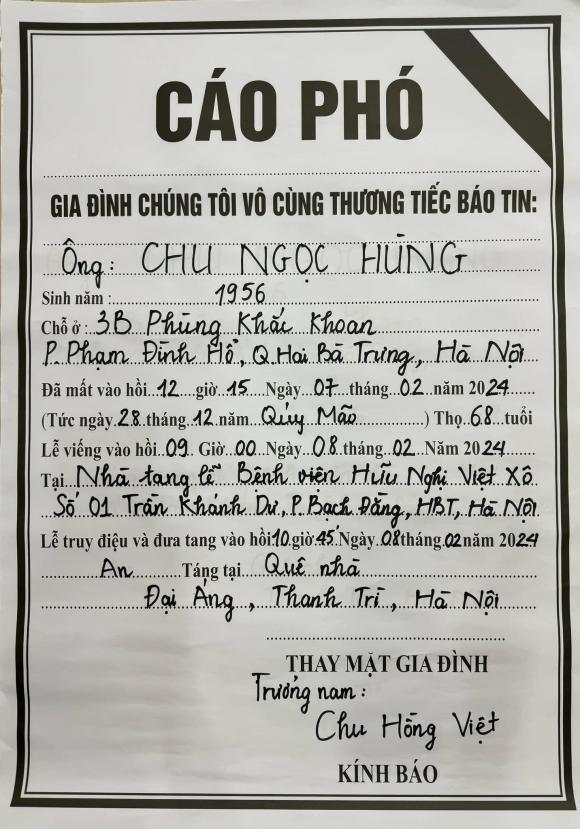 CÁO PHÓ
GIA ĐÌNH CHÚNG TÔI VÔ CÙNG THƯƠNG TIẾC BÁO TIN:
Ông: CHU NGỌC HÙNG
Sinh năm: 1956
Chỗ ở: 3B Phùng Khắc Khoan
P. Phạm Đình Hổ, Q. Hai Bà Trưng, Hà Nội
Đã mất vào hồi 12 giờ 15 Ngày 07 tháng 02 năm 2024
(Tức ngày 28 tháng 12 năm Qúy Mão) Thọ 68 tuổi
Lễ viếng vào hồi 09 Giờ 00 Ngày 08 tháng 02 Năm 2024
Tại Nhà tang lễ Bệnh viên Hữu Nghị Việt Xô
Số 01 Trần Khánh Dư, P. Bạch Đằng, HBT, Hà Nội
Lễ truy điệu và đưa tang vào hồi 10 giờ 45' Ngày 08 tháng 02 năm 2024
An Táng tại Quê nhà
Đại Áng, Thanh Trì, Hà Nội
THAY MẶT GIA ĐÌNH
Trưởng nam:
Chu Hồng Việt
KÍNH BÁO